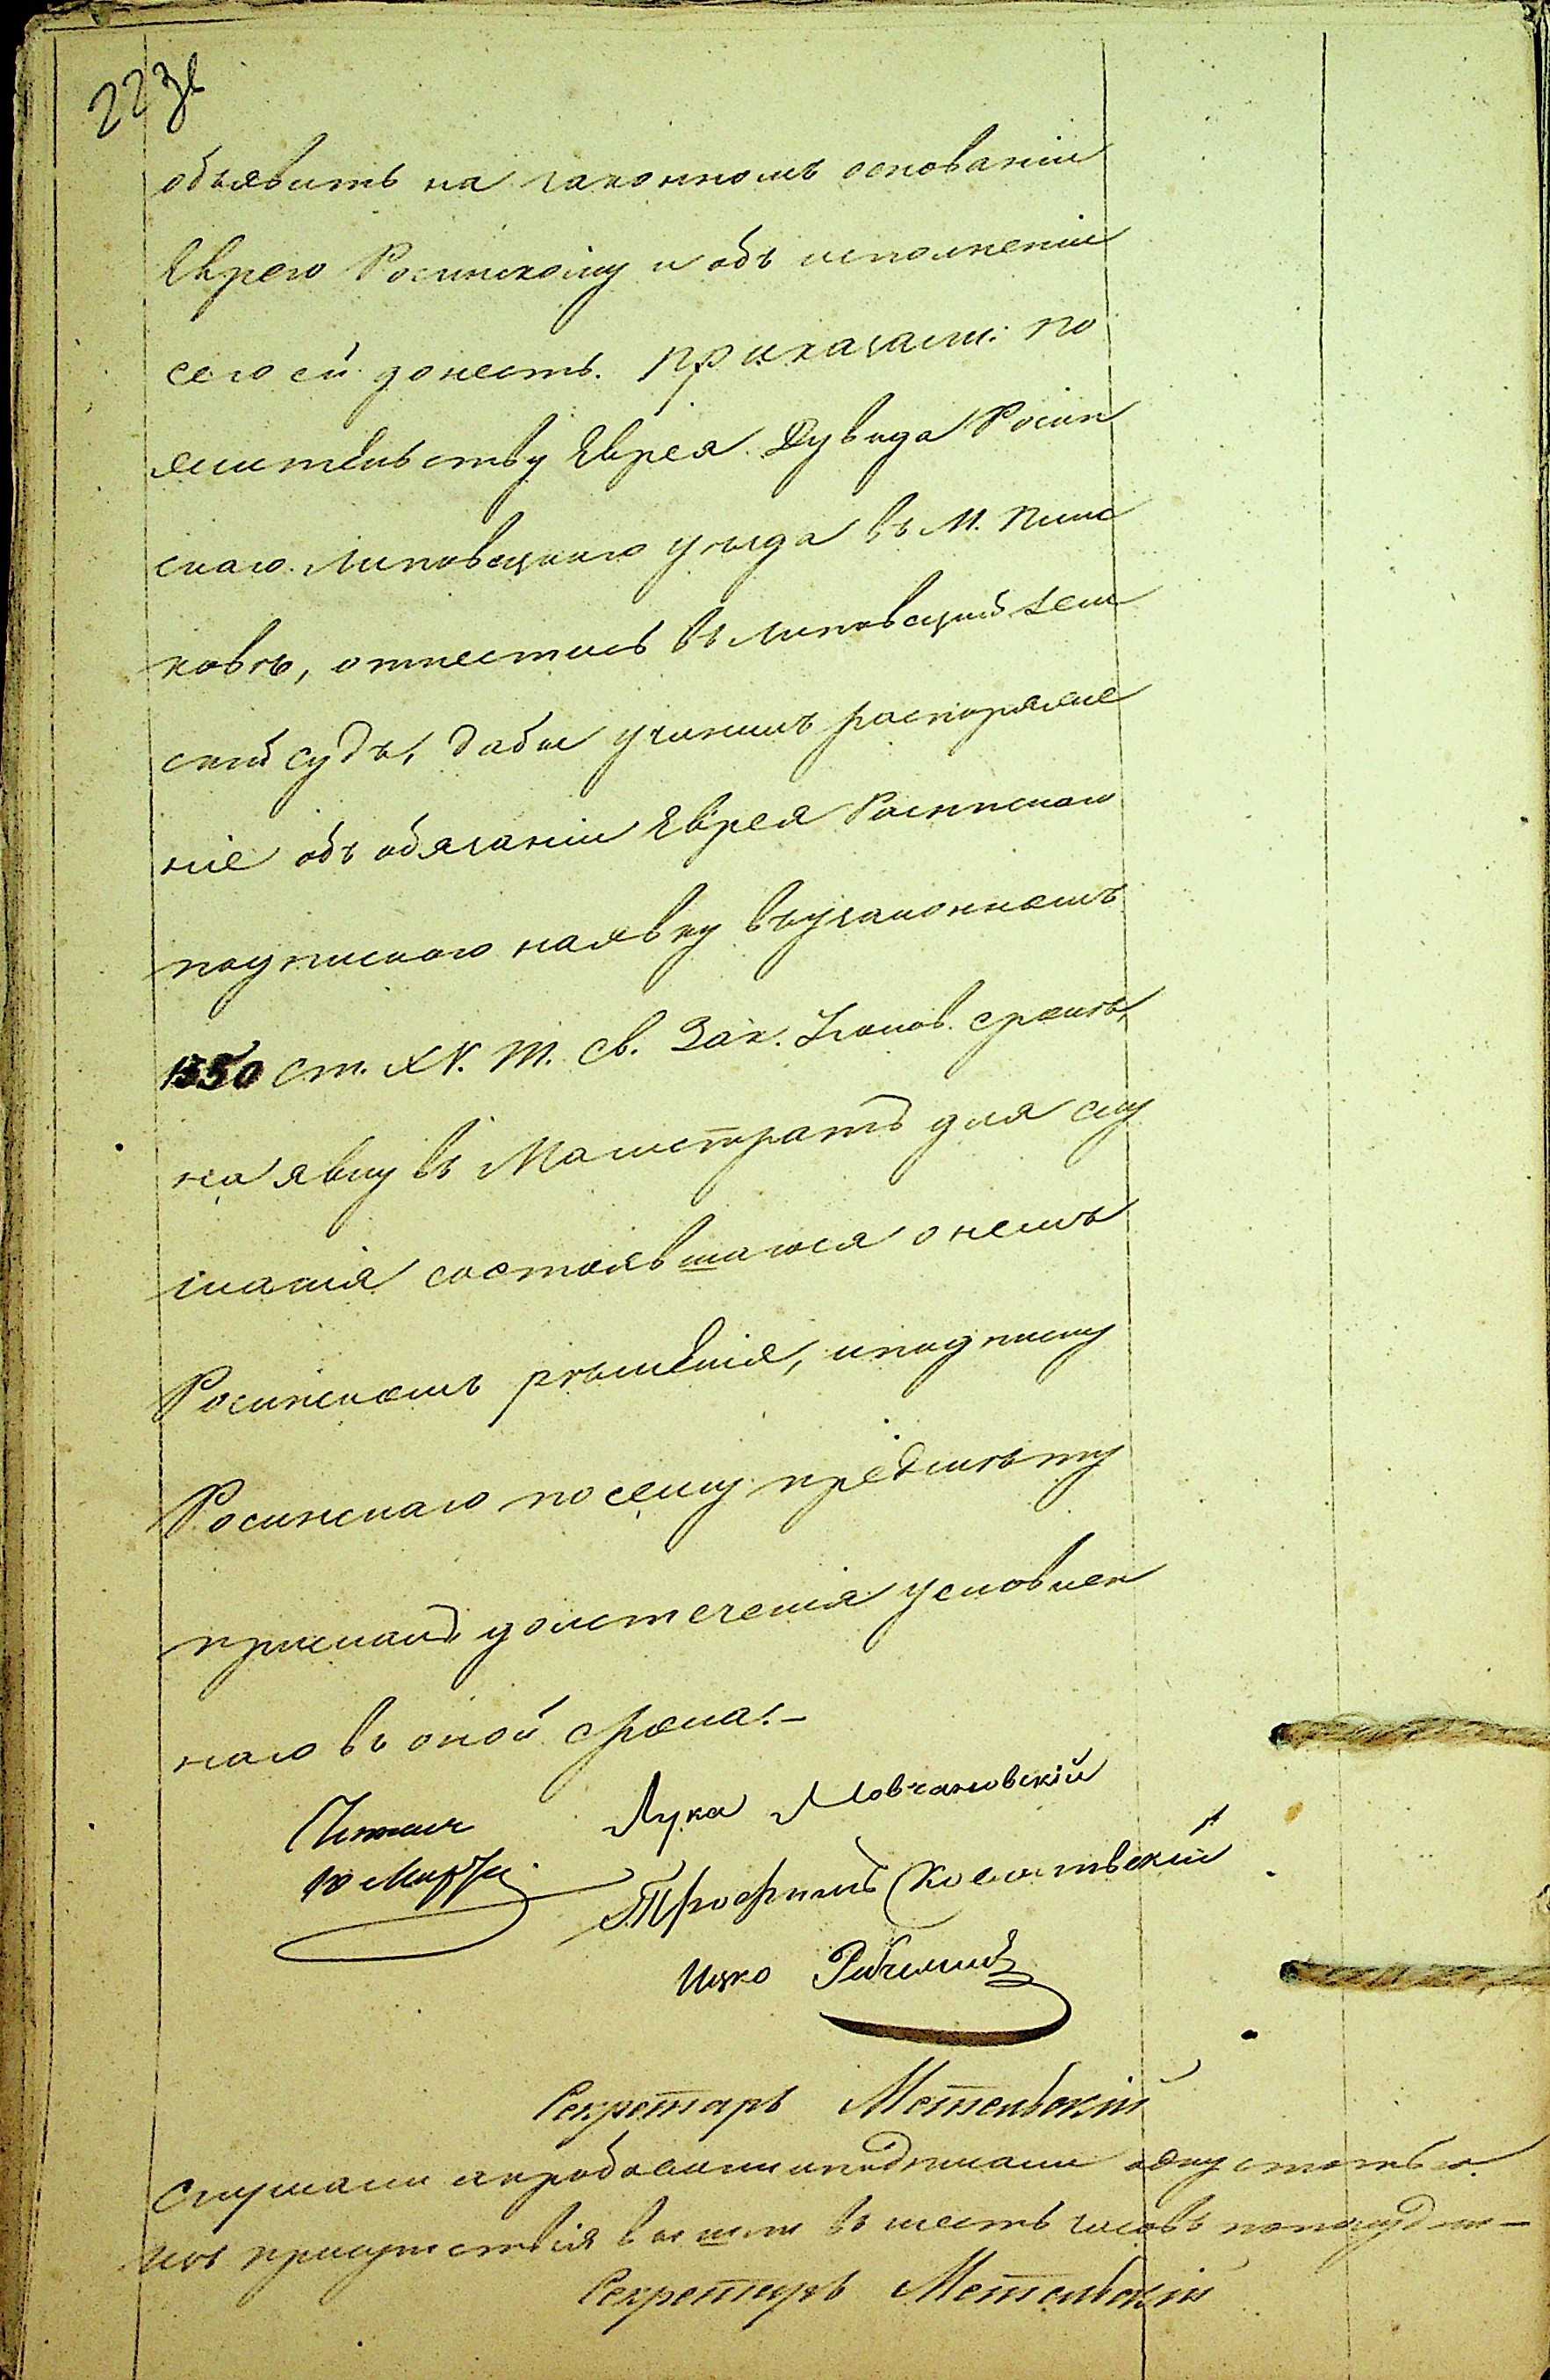 223
объявить на законномъ основаніи
Еврею Росинскому и объ исполненіи
сего ей донесть. Приказали: по
жительству Еврея Дувида Росин
скаго Липовецкаго уезда въ М. Пинс
ковѣ, отнестись въ Липовецкій Зем
скій судъ, дабы учинилъ распоряже
ніе объ обязаніи Еврея Росинскаго
подпискою на явку въ узаконенномъ
1550 ст. XV. т. Св. Зак. Уголов. срокѣ,
на явку въ Магистратъ для слу
шанія состоявшагося о немъ
Росинскомъ рѣшенія, и подписку
Росинскаго по сему предмѣту
прислалъ до истеченія условлен
наго въ оной срока.-
Читалъ
Лука Мовчановскій
Трофимъ
Ицко
Секретарь Метельскій
Слушали и подписали одну статью.
Изъ присутствія вышли въ шесть часовъ пополудни-
Секретарь Метельскій